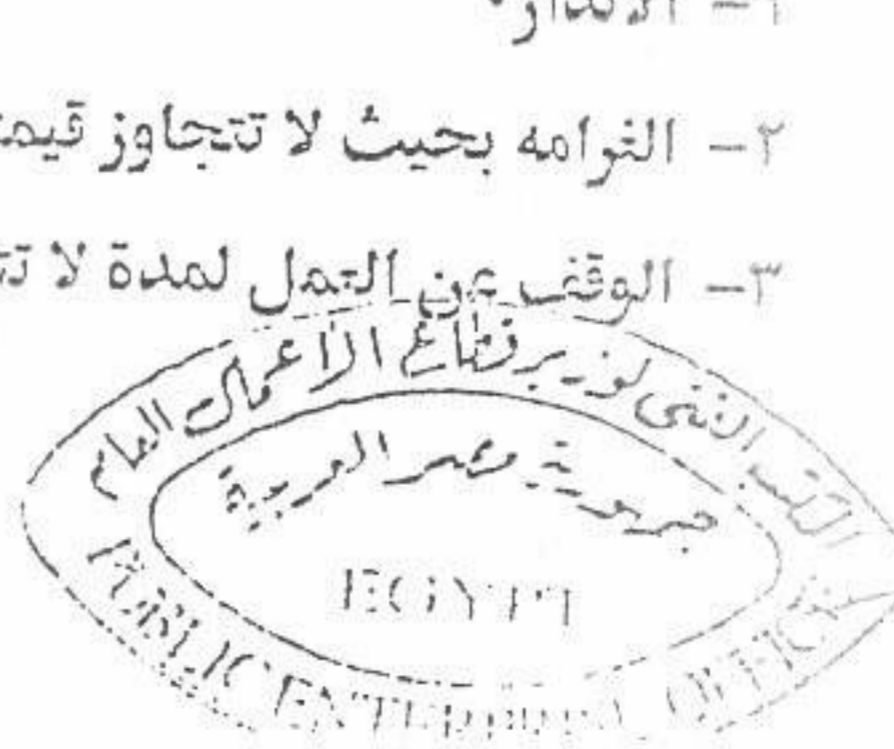 ١- الانذار.
٢- الغرامه بحيث لا تتجاوز قيمة
٣- الوقف عن العمل لمدة لا
المكتب الفنى لوزير قطاع الأعمال العام
جمهورية مصر العربية
EGYPT
PUBLIC ENTERPRISE OFFICE